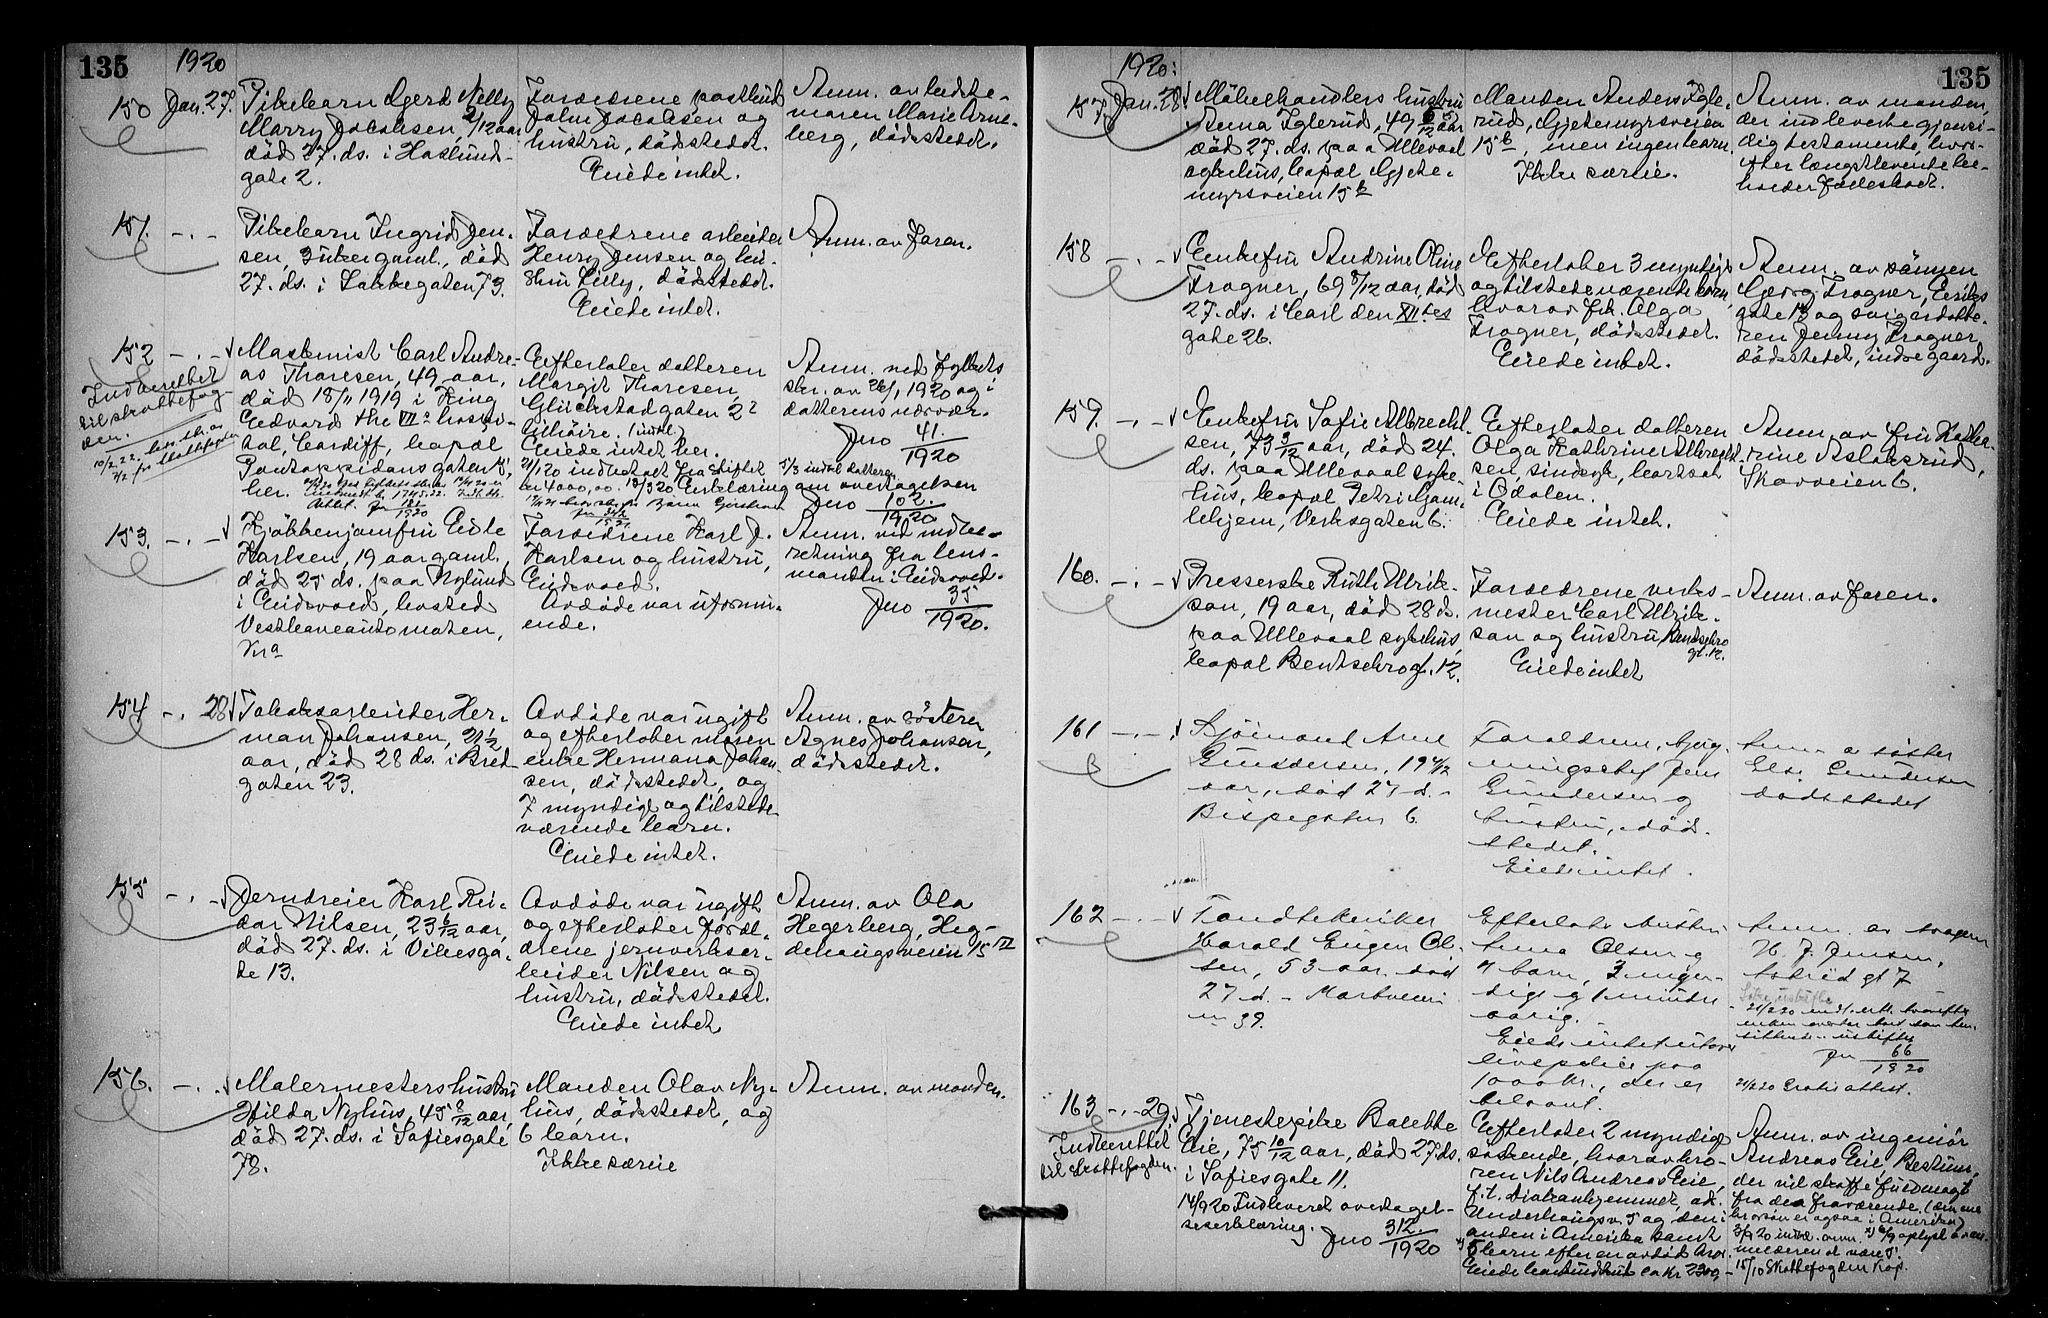 135
1920
150 Jan. 27. Pikebarn Gerd Nelly
Marry Jacobsen, 2/12 aar
död 27. ds. i Haslund-
gate 2.
Forældrene postbud
John Jacobsen og
hustru, dödsstedet.
Eiede intet.
Anm. av bedste-
moren Marie Arne-
berg, dödsstedet.
151. - . - Pikebarn Ingrid Jen-
sen, 3 uker gaml., död
27. ds. i Lakkegaten 73.
Forældrene arbeider
Henry Jensen og hu-
stru Lilly, dödsstedet.
Eiede intet.
Anm. av faren.
152 - . - Maskinist Carl Andre-
as Thoresen, 49 aar,
död 18/11 1919 i King
Edward the VII's hospi-
tal, Cardiff, bopæl
Pontoppidans gaten 5,
her.
Indberettet
til skattefog-
den.
Efterlater datteren
Margit Thoresen,
Glückstadgaten 2²
Eiede intet her.
21/1 20 indbetalt fra skiftet
kr 4000,00. 18/3 20 Erklæring om overtagelsen
Anm. ved fylkets
skr. av 26/1 1920 og i
datterens nærvær.
Jno 41.
1920
Jno 102.
1920
153. - . - Kjökkenjomfru Edle
Karlsen, 19 aar gaml.,
död 25 ds. paa Nylund
i Eidsvold, bosted
Vestbaneautomaten,
Kra
Forældrene Karl J.
Karlsen og hustru,
Eidsvold.
Avdöde var uformu-
ende.
Anm. ved indbe-
retning fra lens-
manden i Eidsvold.
Jno 35
1920.
154 - . 28 Tobaksarbeider Her-
man Johansen, 21 1/2
aar, död 28 ds. i Bred-
gaten 23.
Avdöde var ugift
og efterlater moren
enke Hermana Johan-
sen, dödsstedet, og
7 myndige og tilstede-
værende barn.
Eiede intet.
Anm. av söstren
Agnes Johansen,
dödsstedet.
155 - . - Jerndreier Karl Rei-
dar Nilsen, 23 6/12 aar,
död 27. ds. i Vibesga-
te 13.
Avdöde var ugift
og efterlater foræl-
drene jernverksar-
beider Nilsen og
hustru, dödsstedet.
Eiede intet
Anm. av Ola
Hegerberg, Heg-
dehaugsveien 15 III
156. - . - Malermesters hustru
Hilda Nyhus, 45 8/12 aar,
död 27. ds. i Sofiesgate
78.
Manden Olav Ny-
hus, dödsstedet, og
6 barn.
Ikke særeie
Anm. av manden.
135
1920:
157. Jan. 28 Möbelhandlers hustru
Anna Iglerud, 49 5/12 aar
död 27. ds. paa Ullevaal
sykehus, bopæl Gjete-
myrsveien 15 b
Manden Anders Igle-
rud, Gjetemyrsveien
15 b, men ingen barn.
Ikke særeie.
Anm. av manden,
der indleverte gjensi-
dig testamente, hvor-
efter længstlevende be-
holder fællesboet.
158 - . - Enkefru Andrine Oline
Frogner, 69 8/12 aar, död
27. ds. i Carl den XII tes
gate 26.
Efterlater 3 myndige
og tilstedeværende barn,
hvorav frk. Olga
Frogner, dödsstedet.
Eiede intet.
Anm. av sönnen
Georg Frogner, Eriks
gate 13 og svigerdatte-
ren Jenny Frogner,
dödsstedet, indre gaard.
159. - . - Enkefru Sofie Albrecht-
sen, 73 3/12 aar, död 24.
ds. paa Ullevaal syke-
hus, bopæl Petri Gam-
lehjem, Verksgaten 6.
Efterlater datteren
Olga Kathrine Albrecht-
sen, sindssyk, bortsat
i Odalen.
Eiede intet.
Anm. av fru Katha-
rine Aslaksrud,
Skovveien 6.
160. - . - Presserske Ruth Ulrik-
son, 19 aar, död 28 ds.
paa Ullevaal sykehus,
bopæl Bentsebrogt. 12.
Forældrene verks-
mester Carl Ulrik-
son og hustru, Bentsebro
gt. 12.
Eiede intet
Anm. av faren.
161 - . - Sjömand Arne
Gundersen, 19 4/12
aar, död 27 d. -
Bispegaten 6
Forældrene, bjerg-
ningschef Jens
Gundersen og
hustru, död-
stedet.
Eiede intet.
Anm. a söster
Else Gundersen
dödsstedet
162 - . - Tandtekniker
Harald Eugen Ol-
sen, 53 aar. död
27 d. - Markveien
39.
Efterlater hustru
Anna Olsen og
4 barn, 3 myn-
dige og 1 mindre
aarig.
Eiede intet utover
livspolice paa
1000 kr., der er
belaant.
Anm. av svogeren
H. J. Jensen,
gt 7
Jno 66
1920
21/2 20 Gratis attest.
163 - . - 29. Tjenestepike Bolette
Eie, 75 10/12 aar, död 27. ds.
i Sofiesgate 11.
14/9 20 Indleveret overtagel-
seserklæring.
Jno 312.
1920
Indberettet
til skattefogden.
Efterlater 2 myndige
söskende, hvorav bro-
ren Nils Andreas Eie,
f. t. Diakonhjemmet, adr.
Underhaugsv. 5 og den
anden i Amerika samt
5 barn efter en avdöd bror.
Eiede bankindskud ca kr 2300-
Anm. av ingeniör
Andreas Eie, Bestum,
der vil skaffe fuldmagt
fra den fraværende. (den ene
brorsön er ogsaa i Amerika)
15/10 Skattefogden krav.